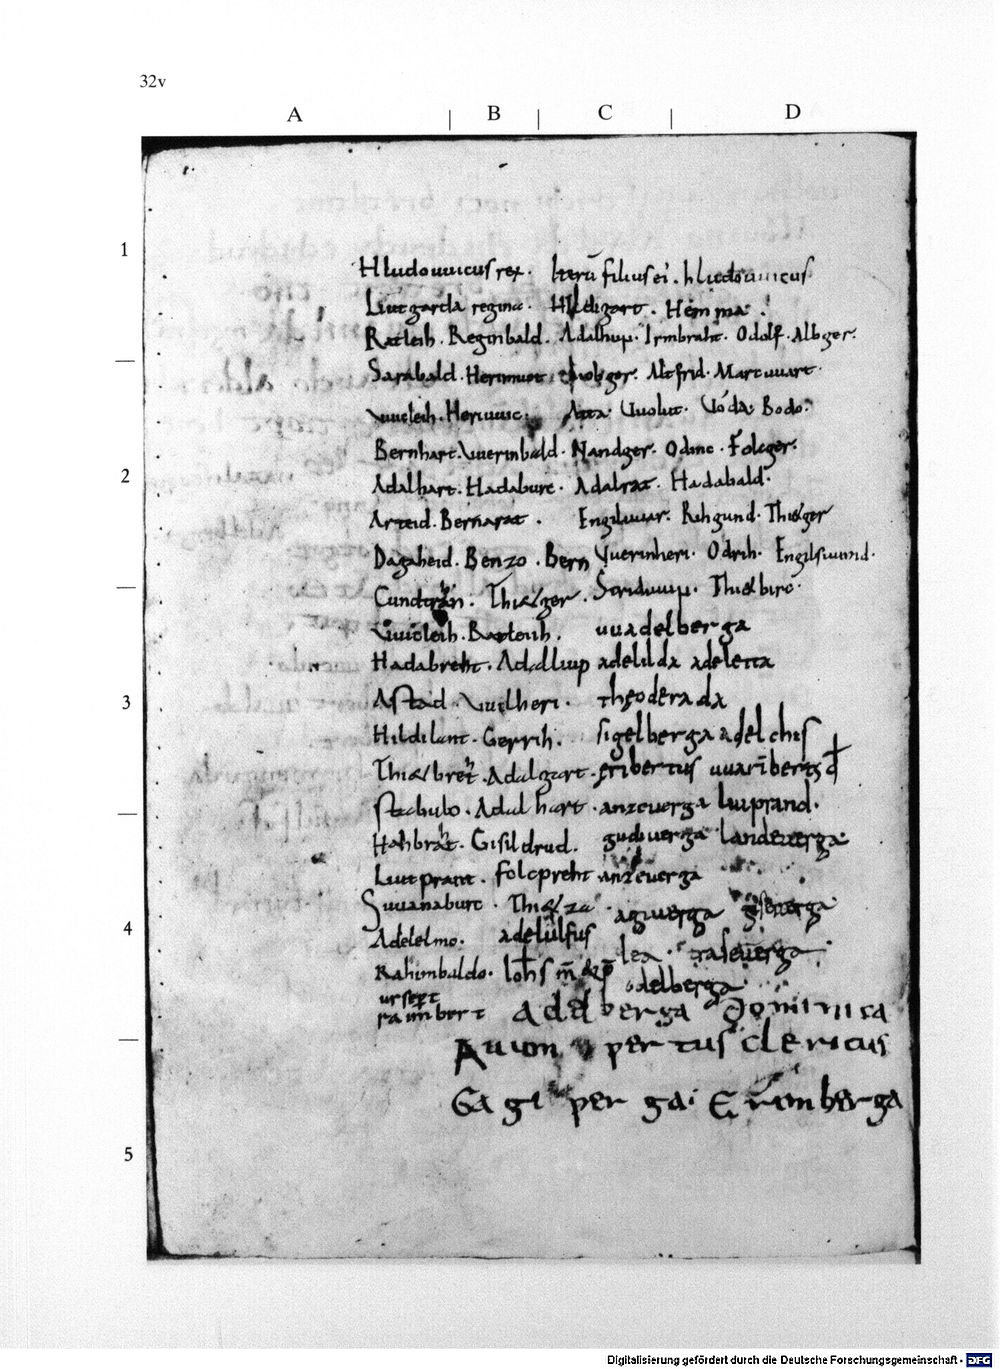 32v
A B C D
1
Hludouuicus rex. Iterū filius ei. hludouuicus
Liutgarda regina. Hildigart. Hemma.
Ratleih. Reginbald. Adalhup. Irmbraht. Odolf. Albger.
Sarabald. Herimuot Altfrid. Martuuart.
Uuicleih. Heriuuic. Atta. Uuolut. Uoda. Bodo.
Bernhart. Uuerinbald. Nandger. Odinc. Folcger.
2
Adalhart. Hadaburc. Adalrat. Hadabald.
Arteid. Bernarat. Engiluuar. Rihgund. Thieger
Dagaheid. Benzo. Bern Uuerinheri. Odrih. Engilsuuind.
Gundrān. Thietger. Scriduuip. Thietbirc.
Uuicleih. Bartolih. uuadelberga
Hadabreht. Adalliup adelilda adeletta
3
Astad. Uuilheri. theoderada
Hildilant. Gerrih. sigelberga adelchis
Thietbret. Adalgart. eribertus uuaribertus đ
stabulo. Adalhart. anzeuerga liuprand.
Hahbrat. Gisildrud. guduerga landeuerga
Liutprant. folcpreht anzeuerga
Suuanaburc. Thietza. agiuerga
4
Adelelmo. adelulfus lea. raseuerga
Rahimbaldo. lohs m̄ &p̄ odelberga
urspert
raimbert Adelberga Dominica
Auuon pertus clericus
Gagi per gai Erimberga
5
Digitalisierung gefördert durch die Deutsche Forschungsgemeinschaft - DFG